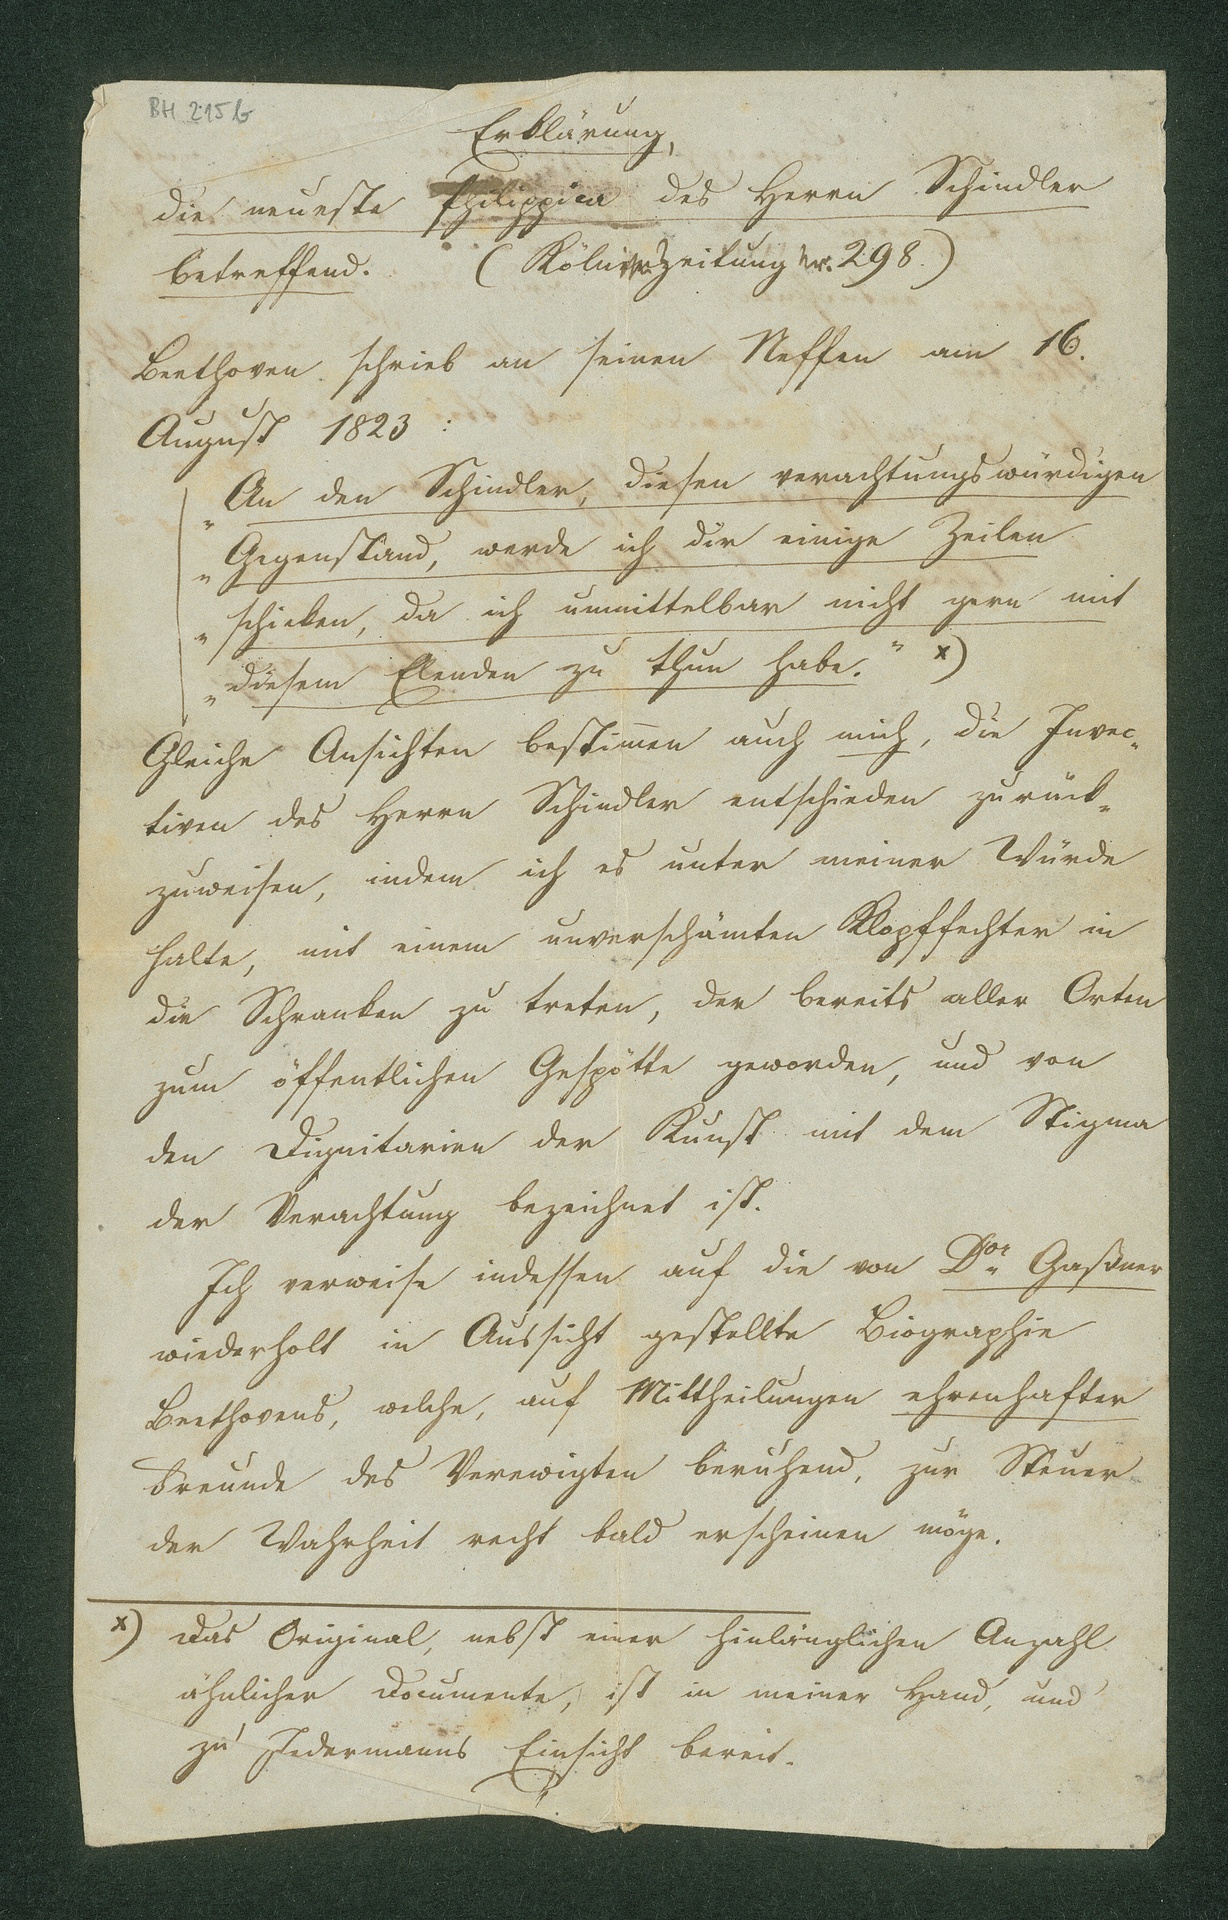 BH 215b
Erklärung,
die neueste Philippica des Herrn Schindler
betreffend. (Kölner Zeitung Nr. 298.)
Beethoven schrieb an seinen Neffen am 16.
August 1823:
„An den Schindler, diesen verachtungswürdigen
„Gegenstand, werde ich dir einige Zeilen
„schicken, da ich unmittelbar nicht gern mit
„diesem Elenden zu thun habe.“ x)
Gleiche Ansichten bestim̅en auch mich, die Invec-
tiven des Herrn Schindler entschieden zurück-
zuweisen, indem ich es unter meiner Würde
halte, mit einem unverschämten Klopffechter in
die Schranken zu treten, der bereits aller Orten
zum öffentlichen Gespötte geworden, und von
den Dignitarien der Kunst mit dem Stigma
der Verachtung bezeichnet ist.
Ich verweise indessen auf die von Dor Gaßner
wiederholt in Aussicht gestellte Biographie
Beethovens, welche, auf Mittheilungen ehrenhafter
Freunde des Verewigten beruhend, zur Steuer
der Wahrheit recht bald erscheinen möge.
x) Das Original, nebst einer hinlänglichen Anzahl
ähnlicher Documente, ist in meiner Hand, und
zu Jedermanns Einsicht bereit.